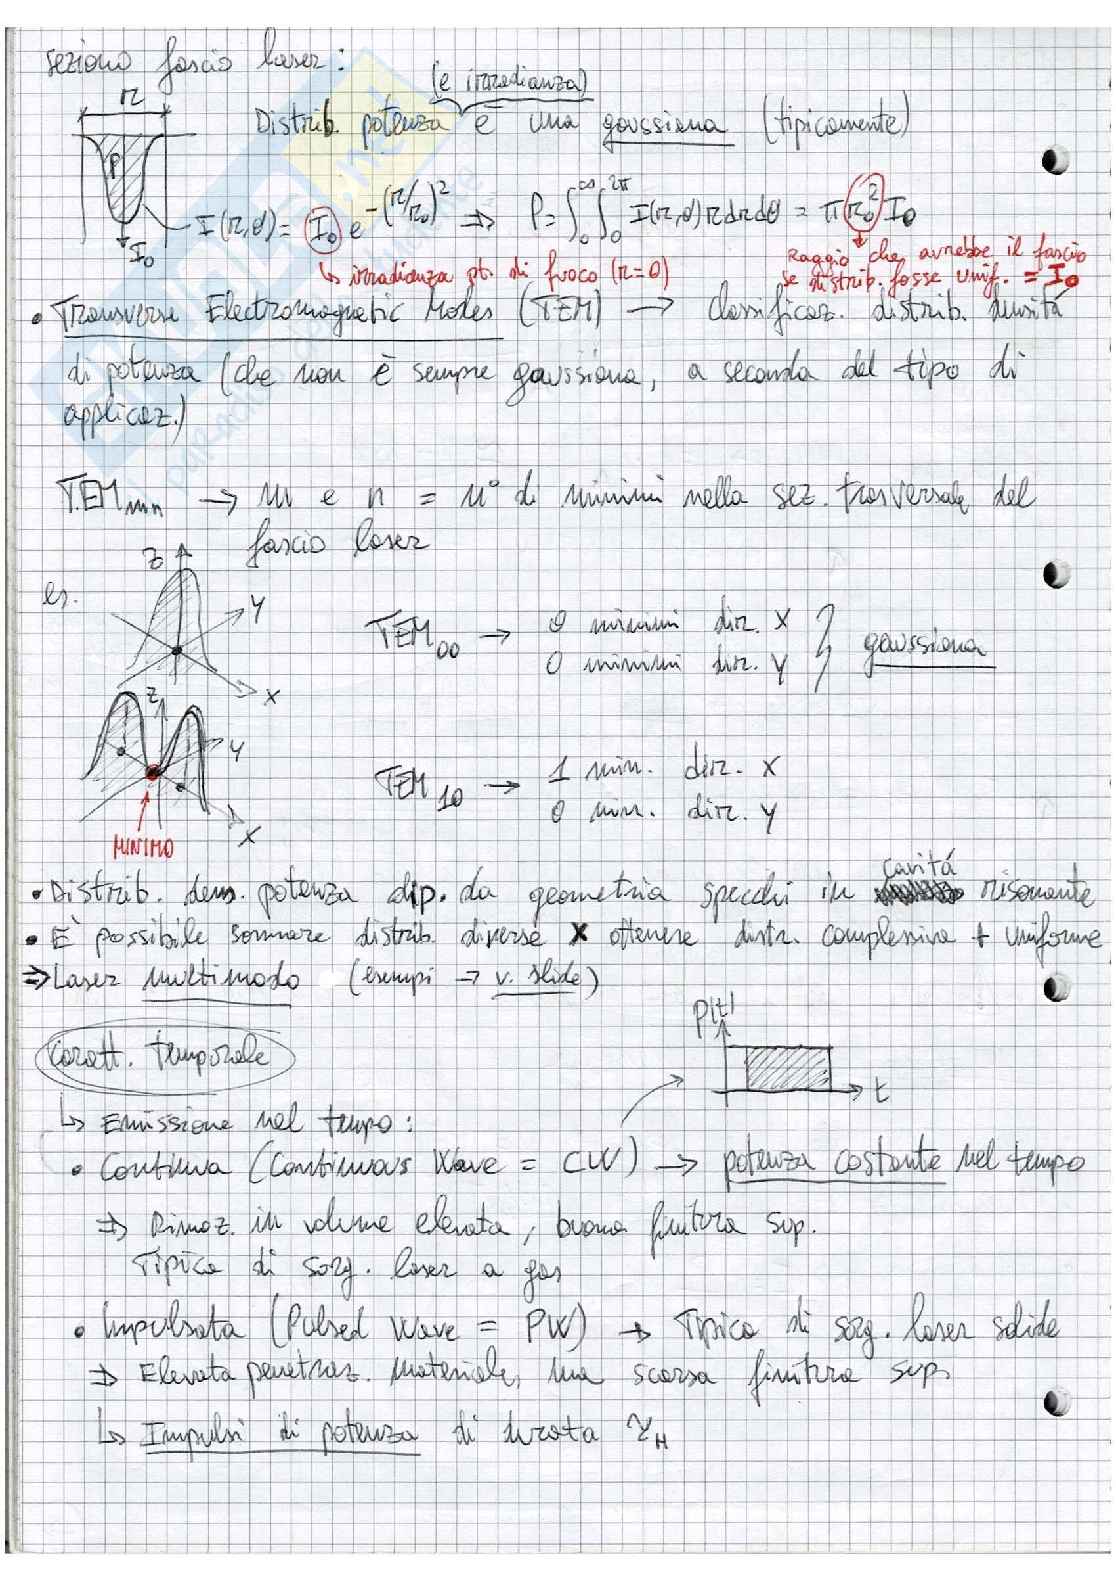 sezione fascio laser:
(e irradianza)
r
Distrib. potenza è una gaussiana (tipicamente)
P
I(r,θ) = I₀ e^-(r/r₀)² ⇒ P = ∫₀^∞ ∫₀^2π I(r,θ) r dr dθ = π r₀² I₀
I₀
↳ irradianza pt. di fuoco (r=0)
Raggio che avrebbe il fascio
se distrib. fosse unif. = I₀
• Transverse Electromagnetic Modes (TEM) → classificaz. distrib. densitá
di potenza (che non è sempre gaussiana, a seconda del tipo di
applicaz.)
TEMmn → m e n = n° di minimi nella sez. trasversale del
fascio laser
es.
Z
Y
X
TEM₀₀ → 0 minimi dir. X
0 minimi dir. Y
gaussiana
Z
Y
X
MINIMO
TEM₁₀ → 1 min. dir. X
0 min. dir. Y
• Distrib. dens. potenza dip. da geometria specchi in cavitá risonante
• È possibile sommare distrib. diverse x ottenere distr. complessiva + uniforme
⇒ Laser multimodo (esempi → v. slide)
P(t)
t
Caratt. temporale
↳ Emissione nel tempo:
• Continua (Continuous Wave = CW) → potenza costante nel tempo
⇒ Rimoz. in volume elevata, buona finitura sup.
Tipica di sorg. laser a gas
• Impulsata (Pulsed Wave = PW) → Tipica di sorg. laser solide
⇒ Elevata penetraz. materiale, ma scarsa finitura sup.
↳ Impulsi di potenza di durata τH